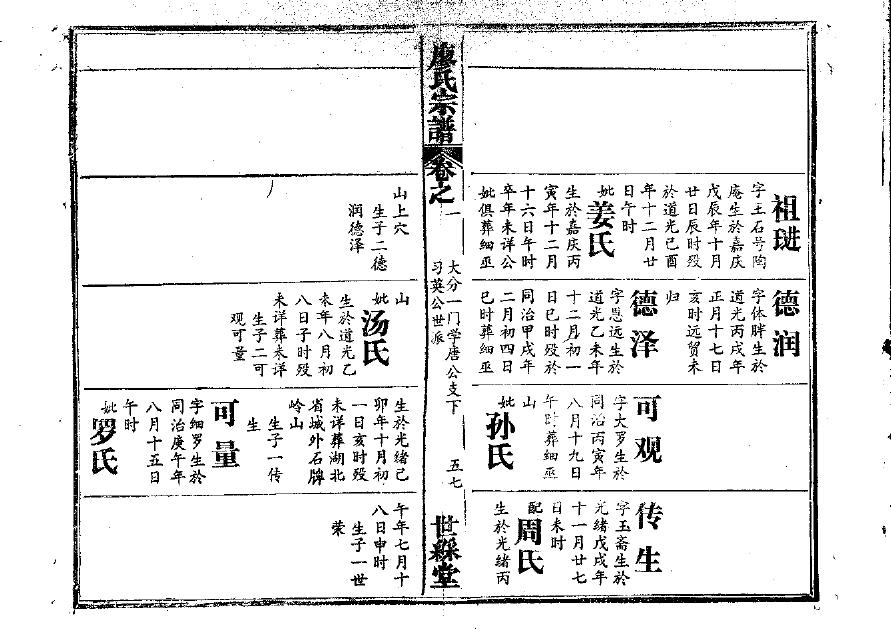 祖琎
字玉石号陶
庵生於嘉庆
戊辰年十月
廿日辰时殁
於道光己酉
年十二月廿
日午时
妣
姜氏
生於嘉庆丙
寅年十二月
十六日午时
卒年未详公
妣俱葬细巫
德润
字体胖生於
道光丙戌年
正月十七日
亥时远贸未
归
德泽
字恩远生於
道光乙未年
十二月初一
日巳时殁於
同治甲戌年
二月初四日
巳时葬细巫
可观
字大罗生於
同治丙寅年
八月十九日
午时葬细巫
山
妣
孙氏
传生
字玉斋生於
光绪戊戌年
十一月廿七
日未时
配
周氏
生於光绪丙
廖氏宗譜
卷之一
大分一门学唐公支下
习英公世派
五七
世綵堂
山上穴
生子二德
润德泽
山
妣
汤氏
生於道光乙
未年八月初
八日子时殁
未详葬未详
生子二可
观可量
生於光绪己
卯年十月初
一日亥时殁
未详葬湖北
省城外石牌
岭山
生子一传
生
可量
字细罗生於
同治庚午年
八月十五日
午时
妣
罗氏
午年七月十
八日申时
生子一世
荣